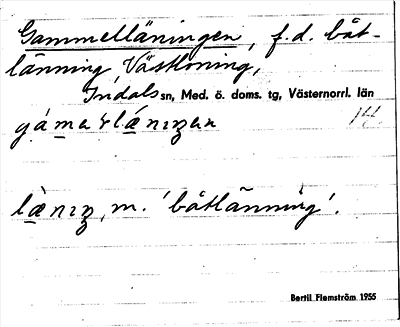 Gammelläningen, f.d. båt-
länning, Västloning,
Indals sn, Med. ö. doms. tg, Västernorrl. län
lä̀nıŋ, m. 'båtlänning'.
Bertil Flemström 1955